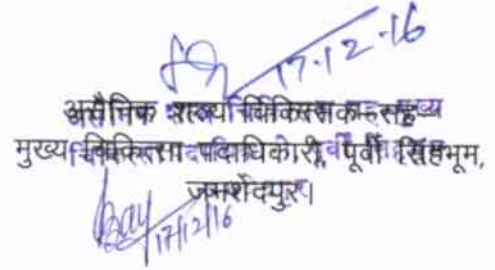 17.12.16
असैनिक शल्य चिकित्सक-सह-
मुख्य चिकित्सा पदाधिकारी, पूर्वी सिंहभूम,
जमशेदपुर।
17/12/16